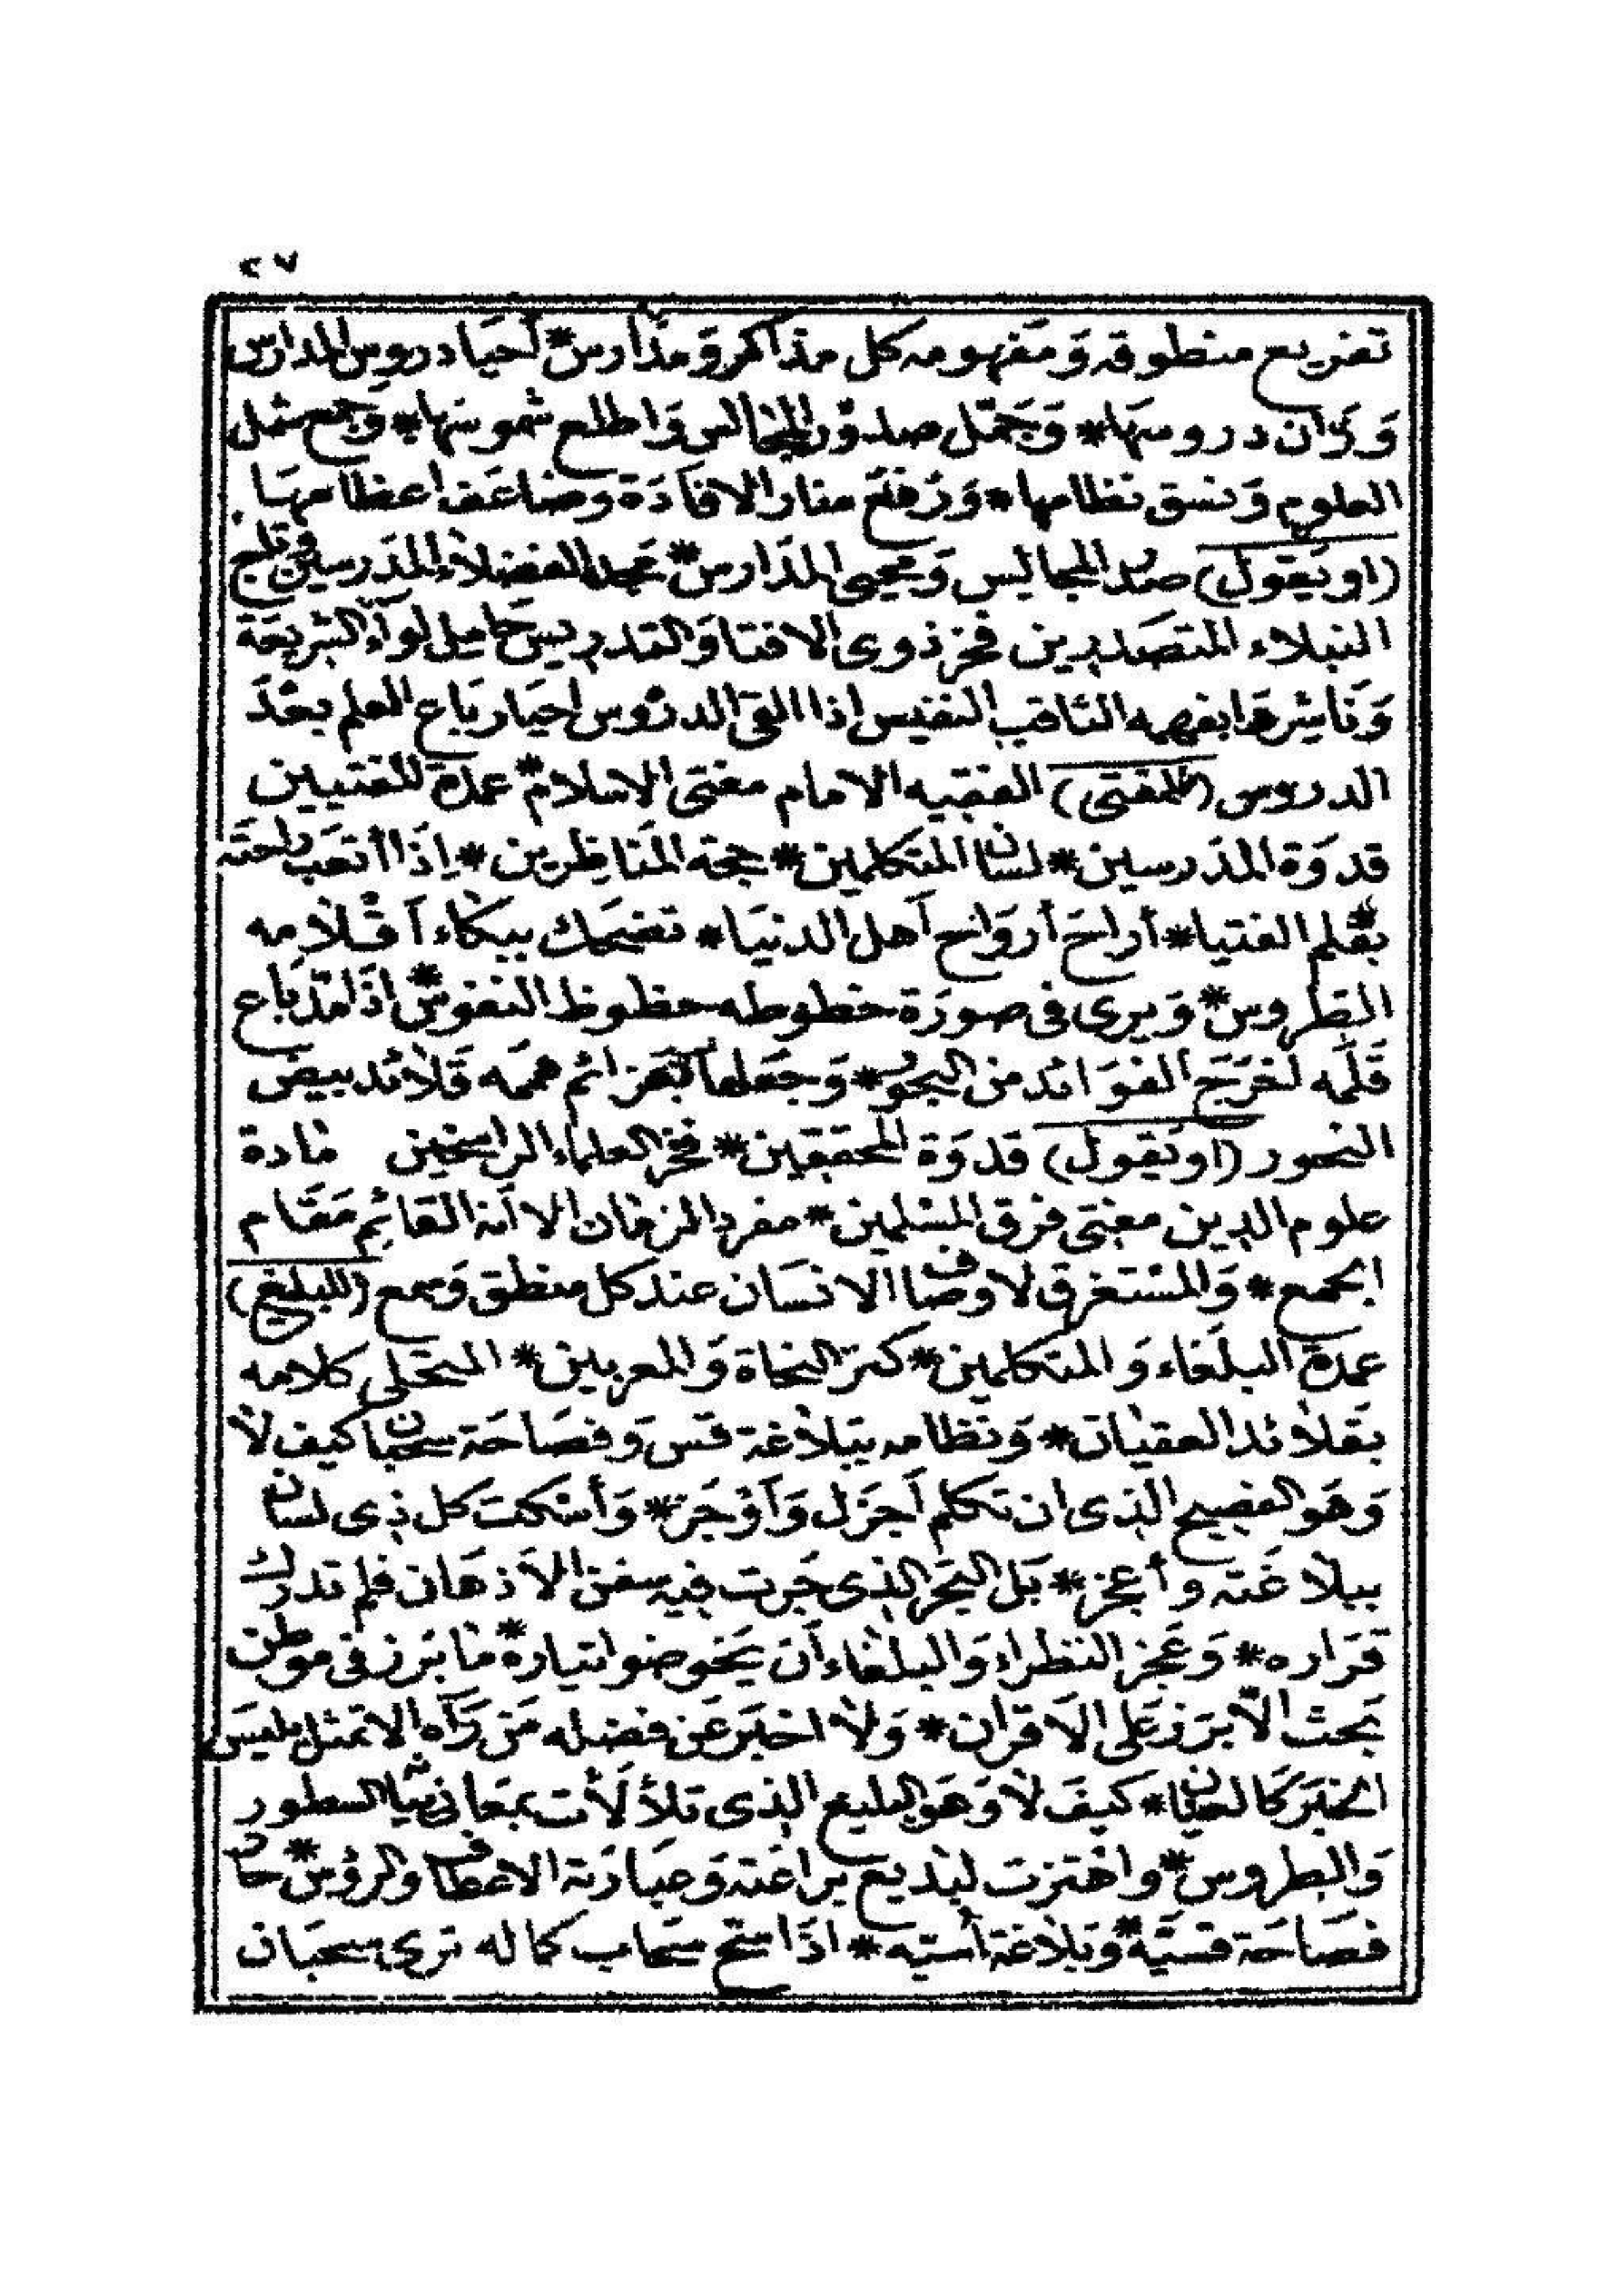 ٢٧
تفريع منطوقه وَمَفهومه كل مذاكر وَمدَارس * أحيَا دروس المدارس
وَزان دروسهَا * وَجَمّل صدوْر المجالس وَاطلع شموسَها * وَجمع شمل
العلوم وَنسق نظامها * وَرَفعَ منار الافَادَة وضاعَف اعظامهَا
(او يَقول) صَدر المجالِس وَمحيى المدَارس * عمدة الفضلاء المدَرسين وَتاج
النبلاء المتصَدرين فخر ذوى الافتا وَالتدريس حَامِل لوآء الشريعَة
وَنَاشِرهَا بفهمه الثاقب النفيس اذا القى الدرُوس احيَا ربَاع العلم بعْدَ
الدروس (للمفتى) الفقيه الامام مفتى الاسلام * عمدة المفتيين
قدوَة المدَرسين * لسَان المتكلمين * حجة المنَاظِرين * اِذَا أتعَب رَاحَته
بقَلم الفتيا * أراحَ أروَاح أهل الدنيَا * تضحَك ببكاء أقلامه
الطروس * وَيرى فى صورَة خطوطه حظوظ النفوس * اذَا مَدّ بَاع
قَلمه أخرَجَ الفوَائد من البحُور * وَجعَلهَا بعَزائم هممَه قَلائد بيض
النحور (او يَقول) قدوَة المحققين * فخر العلماء الراسخين مَادة
علوم الدين مفتى فرق المسْلمين * مفرد الزمَان الا أنه القائِم مَقام
الجمع * وَالمسْتغرق لاوصَاف الانسَان عند كل منطق وَسمع (للبليغ)
عمدة البلغَاء وَالمتكلمين * كنز النحَاة وَالمعربين * المتحَلى كلامه
بقَلائد العقيَان * وَنظامه ببَلاغة قس وَفصَاحَة سحبَان كيف لا
وَهَو الفصيح الذى ان تكلم أجزَل وَأوْجَز * وَأسْكت كل ذى لسَان
ببلاغَته وأعجز * بَل البَحْر الذى جَرت فيه سفن الأذهَان فلم تدرك
قرَاره * وَعَجز النظراء وَالبلغَاء أن يَخوضوا تياره * مَا برَز فى موطن
بَحث الاّ برَز عَلى الاَقران * وَلا اخبَر عَن فضله مَن رَآه الا تمثل بليسَ
الخبَر كَالعيَان * كيفَ لا وَهَو البليغ الذى تلألأت بمعَانى بيَانه السطور
وَالطروس * واهْتزت لبديع برَاعَته وَعبَارَته الاعطَاف وَالرؤس * حَاز
فصَاحَة قسيّة * وَبَلاغة أسيّه * اذَا سحّ سحَاب كماله ترى سحبَان